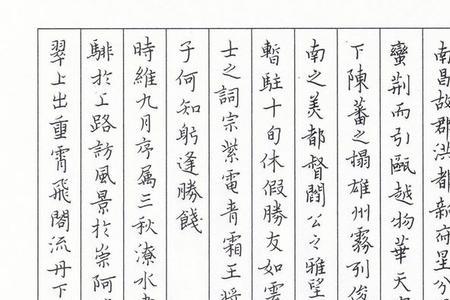 南昌故郡洪都新府星分
蠻荆而引甌越物華天
下陳蕃之榻雄州霧列俊
南之美都督閻公之雅望
暫駐十旬休假勝友如雲
士之詞宗紫電青霜王將
子何知躬逢勝餞
時維九月序属三秋潦水
騑於上路訪風景於崇阿
翠上出重霄飛閣流丹下